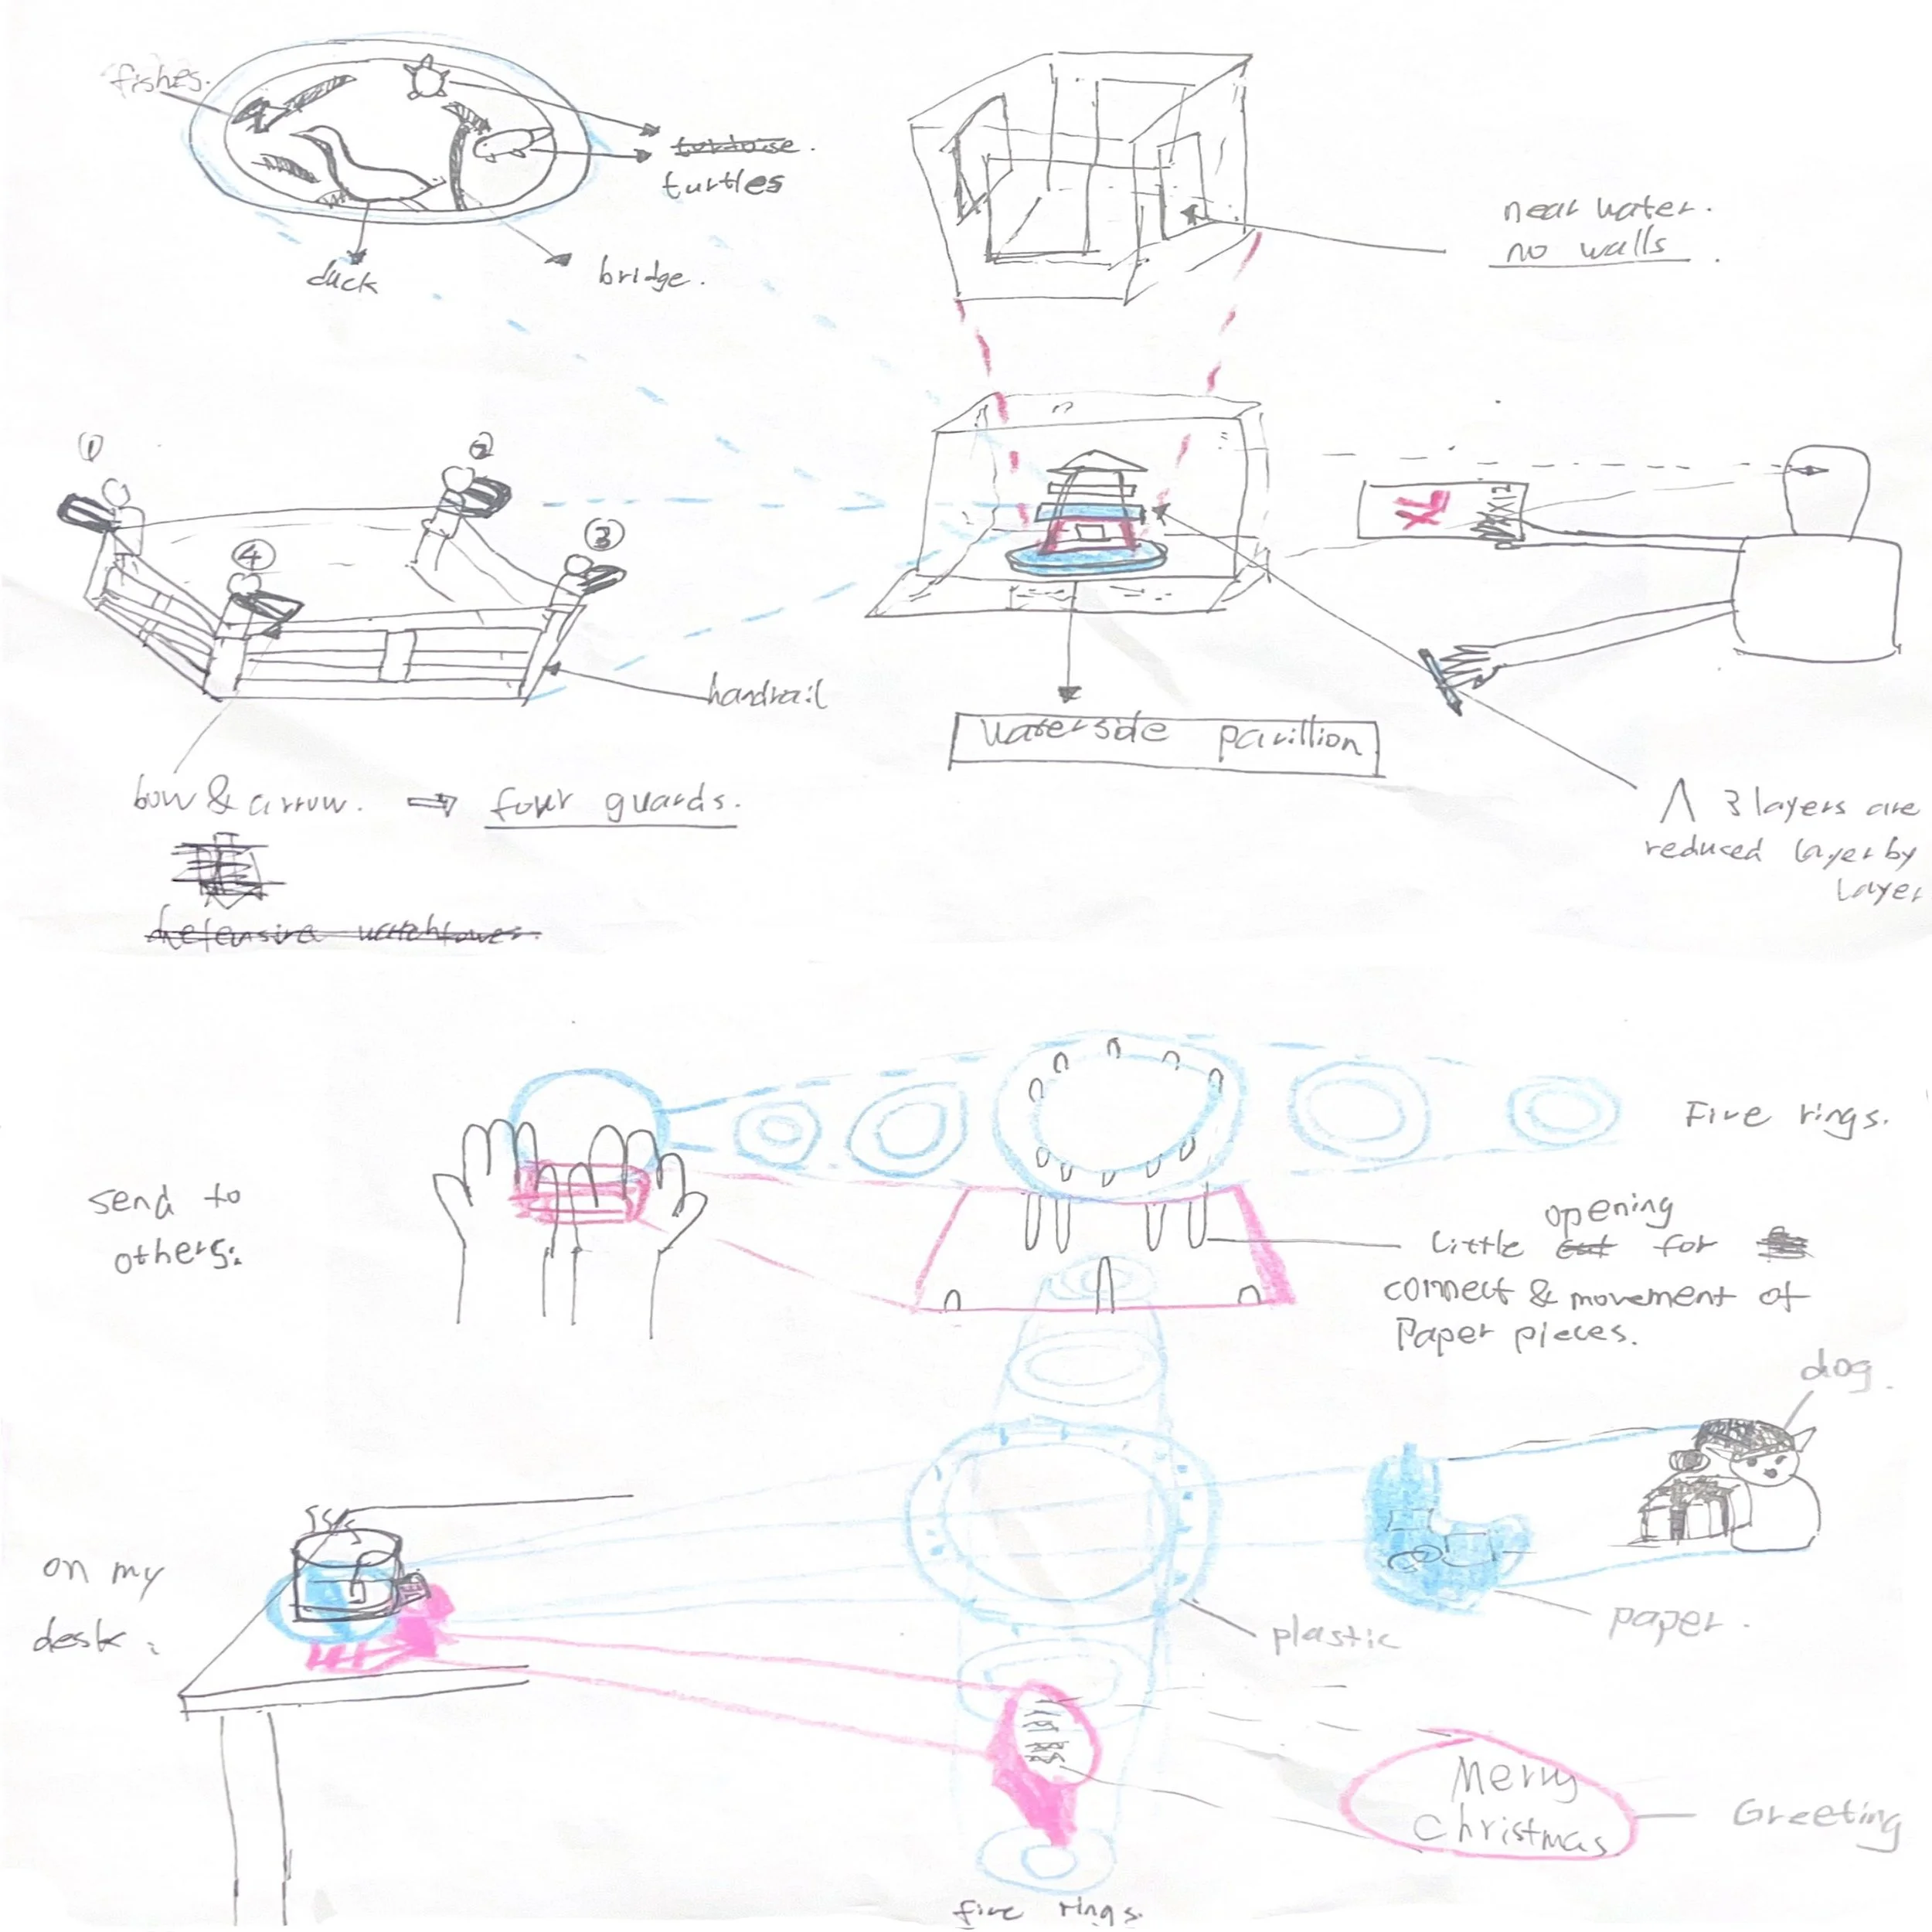 fishes.
tortoise.
turtles
duck
bridge.
near water.
no walls.
①
②
③
④
handrail
bow & arrow. ⇒ four guards.
defensive watchtower.
waterside pavillion
3 layers are
reduced layer by
layer
Five rings.
send to
others:
opening
Little cut for
connect & movement of
Paper pieces.
dog.
on my
desk:
plastic
paper.
Merry
christmas
Greeting
five rings.